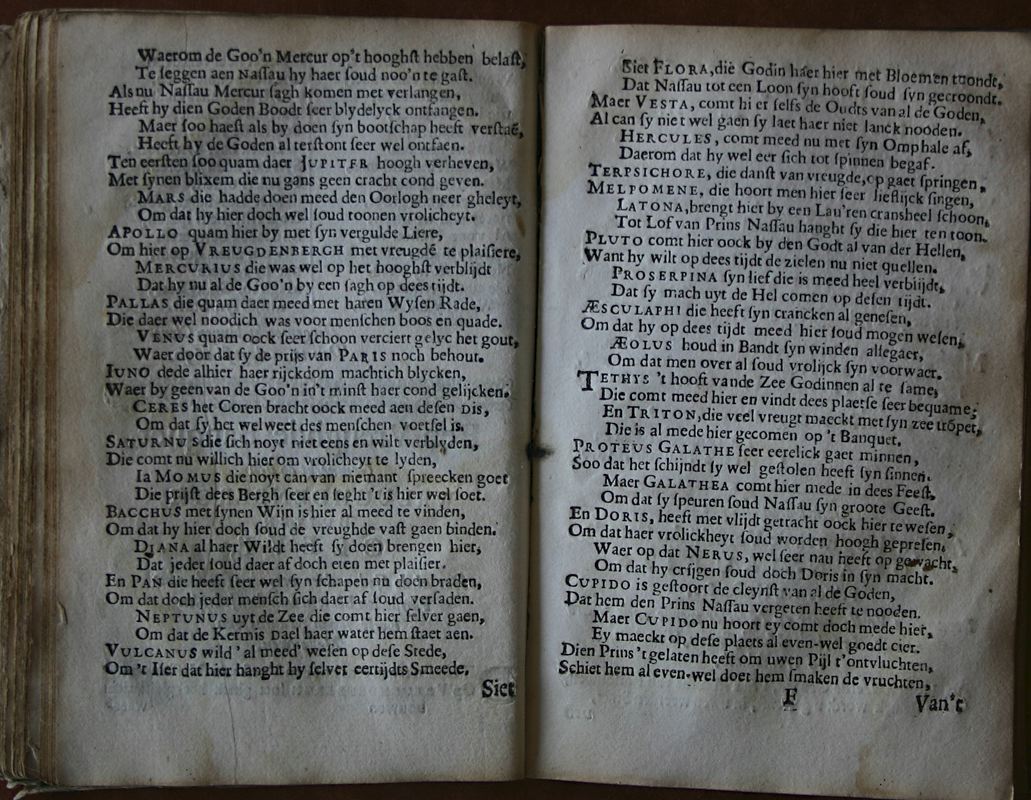 Waerom de Goo'n Mercur op't hooghſt hebben belaſt,
Te ſeggen aen Naſſau hy haer ſoud noo'n te gaſt.
Als nu Naſſau Mercur ſagh komen met verlangen,
Heeft hy dien Goden Boodt ſeer blydelyck ontfangen.
Maer ſoo haeſt als hy doen ſyn bootſchap heeft verſtaē,
Heeft hy de Goden al terſtont ſeer wel ontfaen.
Ten eerſten ſoo quam daer JUPITER hoogh verheven,
Met ſynen blixem die nu gans geen cracht cond geven.
MARS die hadde doen meed den Oorlogh neer gheleyt,
Om dat hy hier doch wel ſoud toonen vrolicheyt.
APOLLO quam hier by met ſyn vergulde Liere,
Om hier op VREUGDENBERGH met vreugdē te plaiſiere,
MERCURIUS die was wel op het hooghſt verblijdt
Dat hy nu al de Goo'n by een ſagh op dees tijdt.
PALLAS die quam daer meed met haren Wyſen Rade,
Die daer wel noodich was voor menſchen boos en quade.
VENUS quam oock ſeer ſchoon verciert gelyc het gout,
Waer door dat ſy de prijs van PARIS noch behout.
IUNO dede alhier haer rijckdom machtich blycken,
Waer by geen van de Goo'n in't minſt haer cond gelijcken.
CERES het Coren bracht oock meed aen deſen DIS,
Om dat ſy het wel weet des menſchen voetſel is.
SATURNUS die ſich noyt niet eens en wilt verblyden,
Die comt nu willich hier om vrolicheyt te lyden,
Ia MOMUS die noyt can van niemant ſpreecken goet
Die prijſt dees Bergh ſeer en ſeght 't is hier wel ſoet.
BACCHUS met ſynen Wijn is hier al meed te vinden,
Om dat hy hier doch ſoud de vreughde vaſt gaen binden.
DIANA al haer Wildt heeft ſy doen brengen hier,
Dat jeder ſoud daer af doch eten met plaiſier.
En PAN die heeft ſeer wel ſyn ſchapen nu doen braden,
Om dat doch jeder menſch ſich daer af ſoud verſaden.
NEPTUNUS uyt de Zee die comt hier ſelver gaen,
Om dat de Kermis DAEL haer water hem ſtaet aen.
VULCANUS wild' al meed' weſen op deſe Stede,
Om 't Iſer dat hier hanght hy ſelver eertijdts Smeede,
Siet
Siet FLORA, die Godin haer hier met Bloemen toondt,
Dat Naſſau tot een Loon ſyn hooft ſoud ſyn gecroondt.
Maer VESTA, comt hier ſelfs de Oudts van al de Goden,
Al can ſy niet wel gaen ſy laet haer niet lanck nooden.
HERCULES, comt meed nu met ſyn Omphale af,
Daerom dat hy wel eer ſich tot ſpinnen begaf.
TERPSICHORE, die danſt van vreugde, op gaet ſpringen,
MELPOMENE, die hoort men hier ſeer lieflijck ſingen,
LATONA, brengt hier by een Lau'ren crans heel ſchoon,
Tot Lof van Prins Naſſau hanght ſy die hier ten toon.
PLUTO comt hier oock by den Godt al van der Hellen,
Want hy wilt op dees tijdt de zielen nu niet quellen.
PROSERPINA ſyn lief die is meed heel verblijdt,
Dat ſy mach uyt de Hel comen op deſen tijdt.
ÆSCULAPHI die heeft ſyn crancken al geneſen,
Om dat hy op dees tijdt meed hier ſoud mogen weſen,
ÆOLUS houd in Bandt ſyn winden altegaer,
Om dat men over al ſoud vrolijck ſyn voorwaer.
TETHYS 't hooft vande Zee Godinnen al te ſame,
Die comt meed hier en vindt dees plaetſe ſeer bequame,
En TRITON, die veel vreugt maeckt met ſyn zee trōpet,
Die is al mede hier gecomen op 't Banquet,
PROTEUS GALATHE ſeer eerelick gaet minnen,
Soo dat het ſchijndt ſy wel geſtolen heeft ſyn ſinnen.
Maer GALATHEA comt hier mede in dees Feeſt,
Om dat ſy ſpeuren ſoud Naſſau ſyn groote Geeſt.
En DORIS, heeft met vlijdt getracht oock hier te weſen,
Om dat haer vrolickheyt ſoud worden hoogh gepreſen,
Waer op dat NERUS, wel ſeer nau heeft op gewacht,
Om dat hy crijgen ſoud doch Doris in ſyn macht.
CUPIDO is geſtoort de cleynſt van al de Goden,
Dat hem den Prins Naſſau vergeten heeft te nooden.
Maer CUPIDO nu hoort ey comt doch mede hier,
Ey maeckt op deſe plaets al even-wel goedt cier.
Dien Prins 't gelaten heeft om uwen Pijl t'ontvluchten,
Schiet hem al even-wel doet hem ſmaken de vruchten,
F
Van't